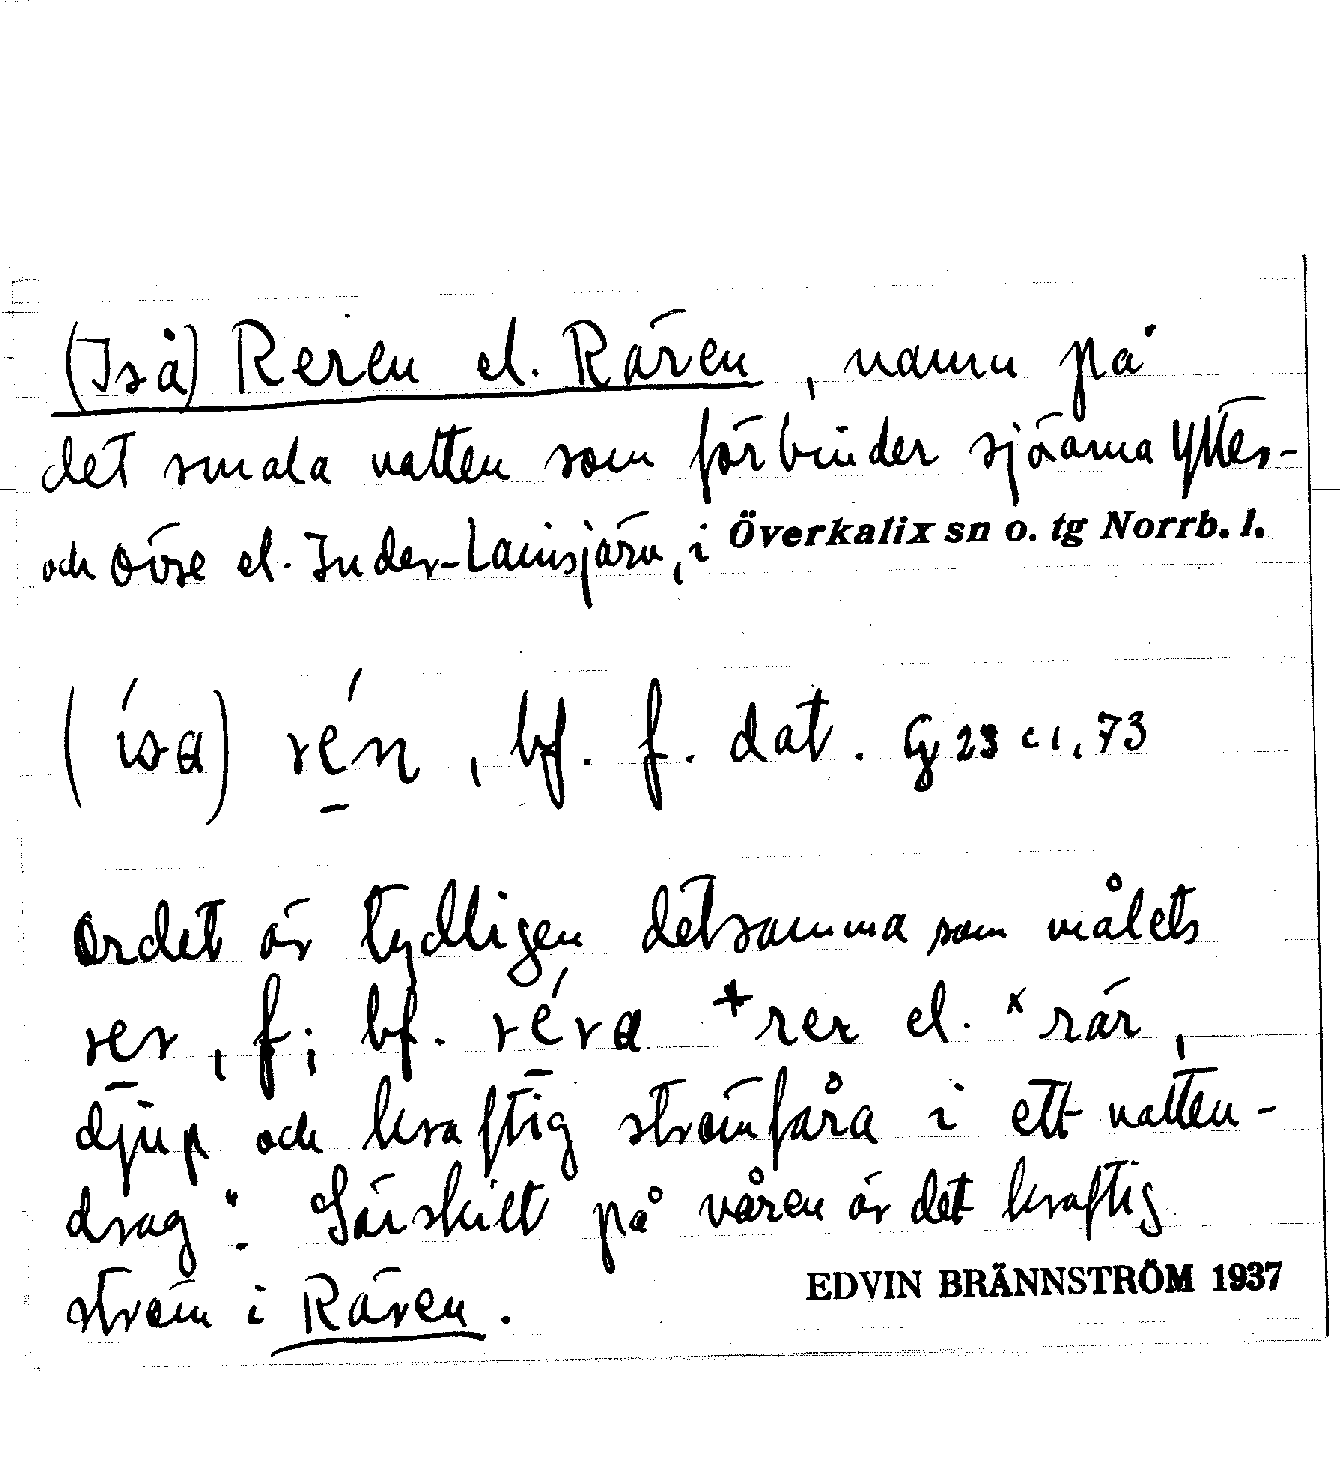 (Iså) Reren el. Rären, namn på
det smala vatten som förbinder sjöarna Ytter-
och övre el. Inder-Lansjärv, i Överkalix sn o. tg Norrb. l.
(ísa) rén, bf. f. dat. G 23 c 1, 73
Ordet är tydligen detsamma som målets
rer, f; bf. réra +rer el. ˣrär,
djup och kraftig strömfåra i ett vatten-
drag". Särskilt på våren är det kraftig
ström i Rären.
EDVIN BRÄNNSTRÖM 1937